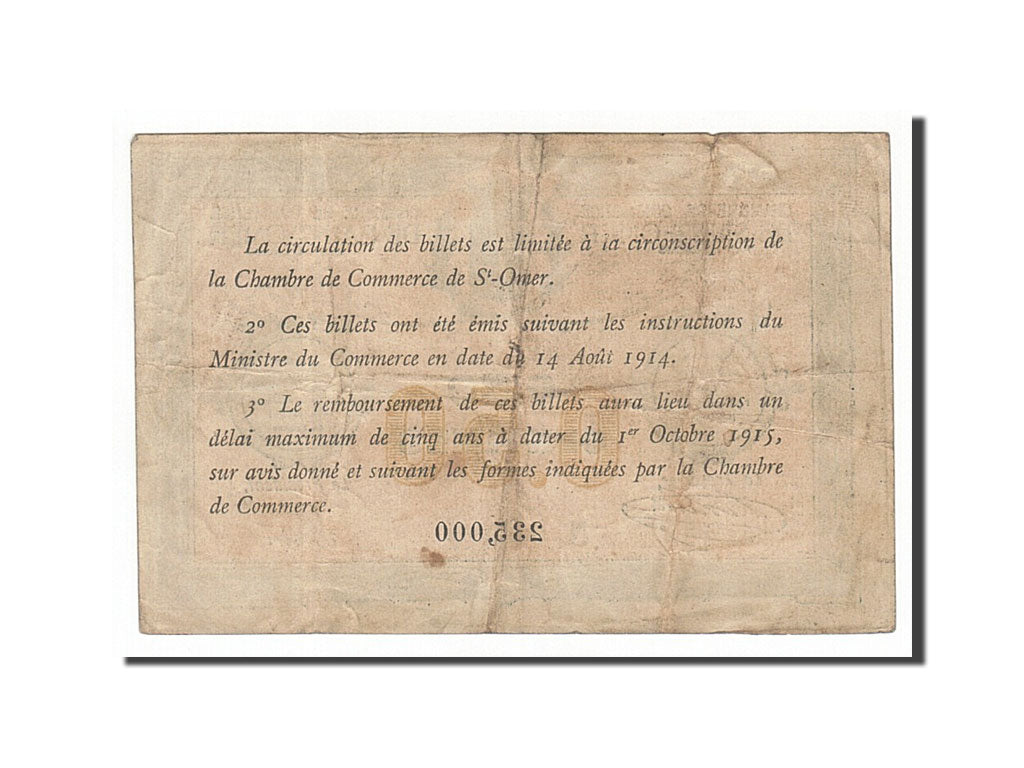 La circulation des billets est limitée à la circonscription de
la Chambre de Commerce de Sᵗ-Omer.
2º Ces billets ont été émis suivant les instructions du
Ministre du Commerce en date du 14 Août 1914.
3º Le remboursement de ces billets aura lieu dans un
délai maximum de cinq ans à dater du 1er Octobre 1915,
sur avis donné et suivant les formes indiquées par la Chambre
de Commerce.
0,50
235,000